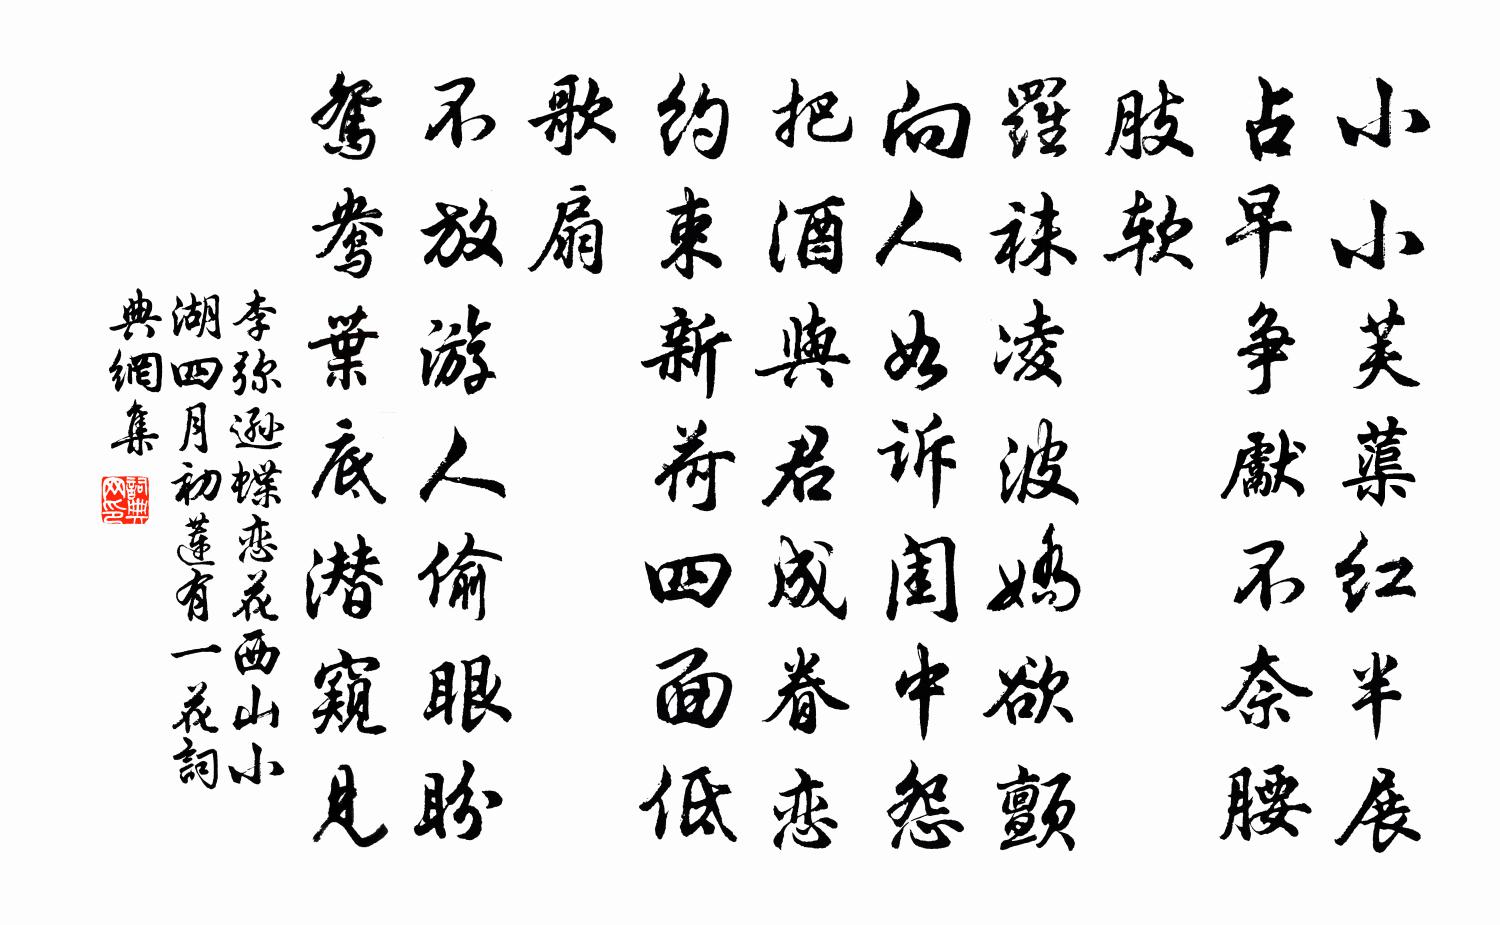 小小芙蕖红半展
占早争獻不奈腰
肢软
羅袜凌波嬌欲顫
向人如诉闺中怨
把酒與君成眷恋
约束新荷四面低
歌扇
不放游人偷眼盼
鸳鸯葉底潜窺見
李弥遜蝶恋花西山小
湖四月初蓮有一花詞
典網集
詞典网印